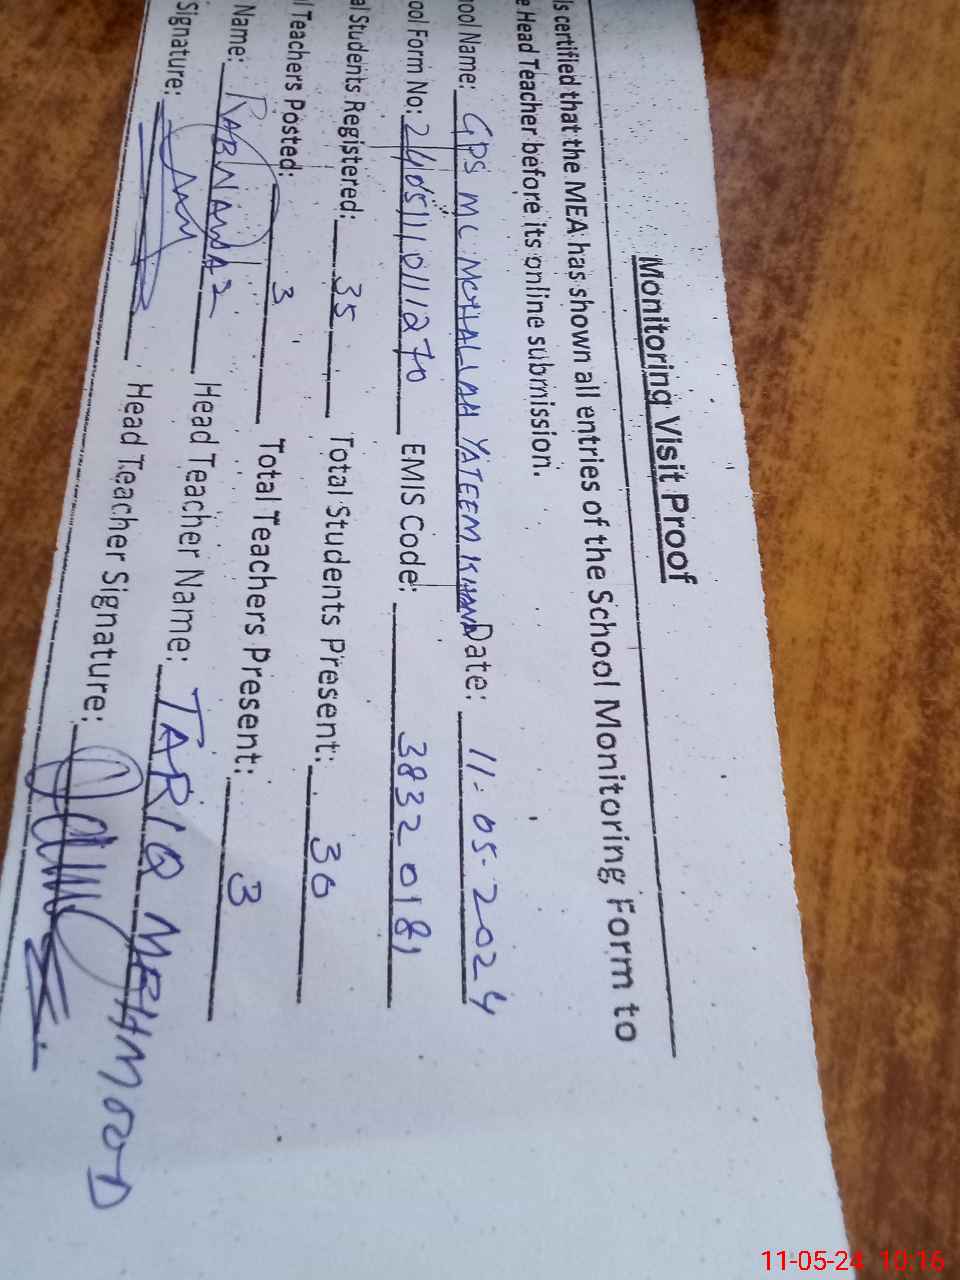 Monitoring Visit Proof
Is certified that the MEA has shown all entries of the School Monitoring Form to
e Head Teacher before its online submission.
ool Name: GPS MC MOHALLAH YATEEM KHANA Date: 11-05-2024
ool Form No: EMIS Code: 38320181
al Students Registered: 35 Total Students Present: 30
l Teachers Posted: 3 Total Teachers Present: 3
Name: RABNAWAZ Head Teacher Name: TARIQ MEHMOOD
Signature: Head Teacher Signature:
11-05-24 10:16